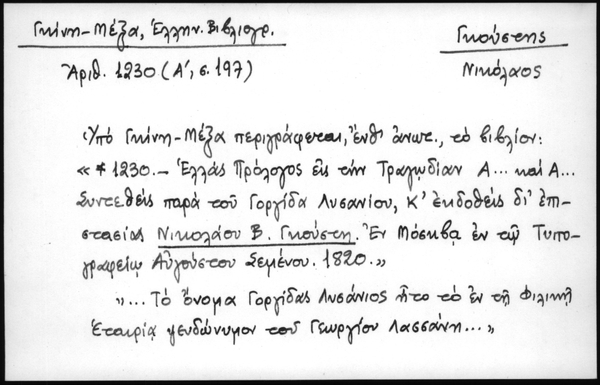 Γκίνη-Μέξα, Ἑλλην. Βιβλιογρ.
Γκούστης
Ἀριθ. 1230 (Α', σ. 197)
Νικόλαος
Ὑπό Γκίνη-Μέξα περιγράφεται, ἔνθ' ἀνωτ., τό βιβλίον:
«*1230.- Ἑλλάς Πρόλογος εἰς τήν Τραγωδίαν Α... καί Α...
Συντεθείς παρά τοῦ Γοργίδα Λυσανίου, Κ' ἐκδοθείς δι' ἐπι-
στασίας Νικολάου Β. Γκούστη. Ἐν Μόσκβᾳ ἐν τῷ Τυπο-
γραφείῳ Αὐγούστου Σεμένου. 1820.»
»... Τό ὄνομα Γοργίδας Λυσάνιος ἦτο τό ἐν τῇ Φιλικῇ
Ἑταιρίᾳ ψευδώνυμον τοῦ Γεωργίου Λασσάνη...»